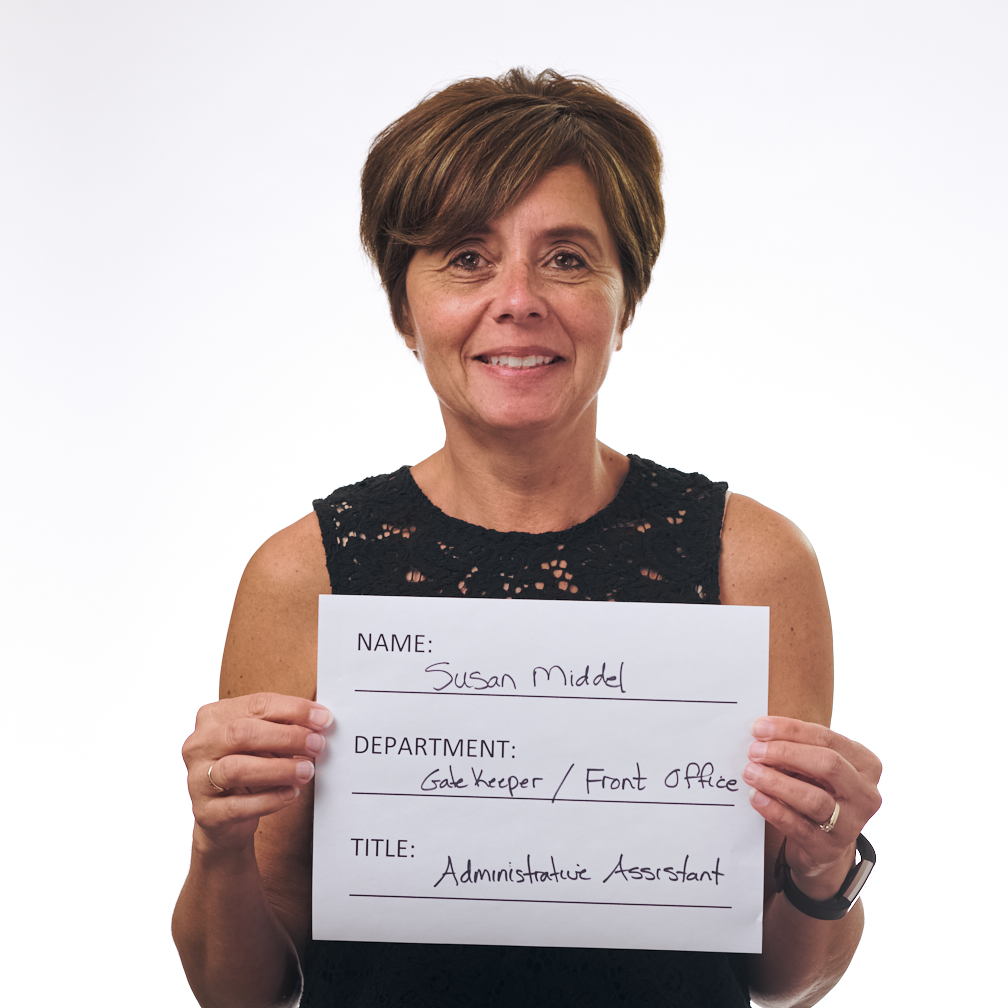 NAME:
Susan Middel
DEPARTMENT:
Gate Keeper / Front Office
TITLE:
Administrative Assistant